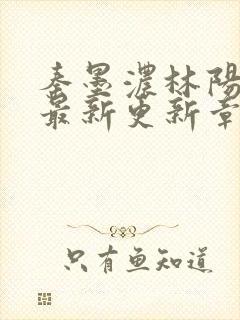 秦墨濃林陽
最新更新章
只有魚知道